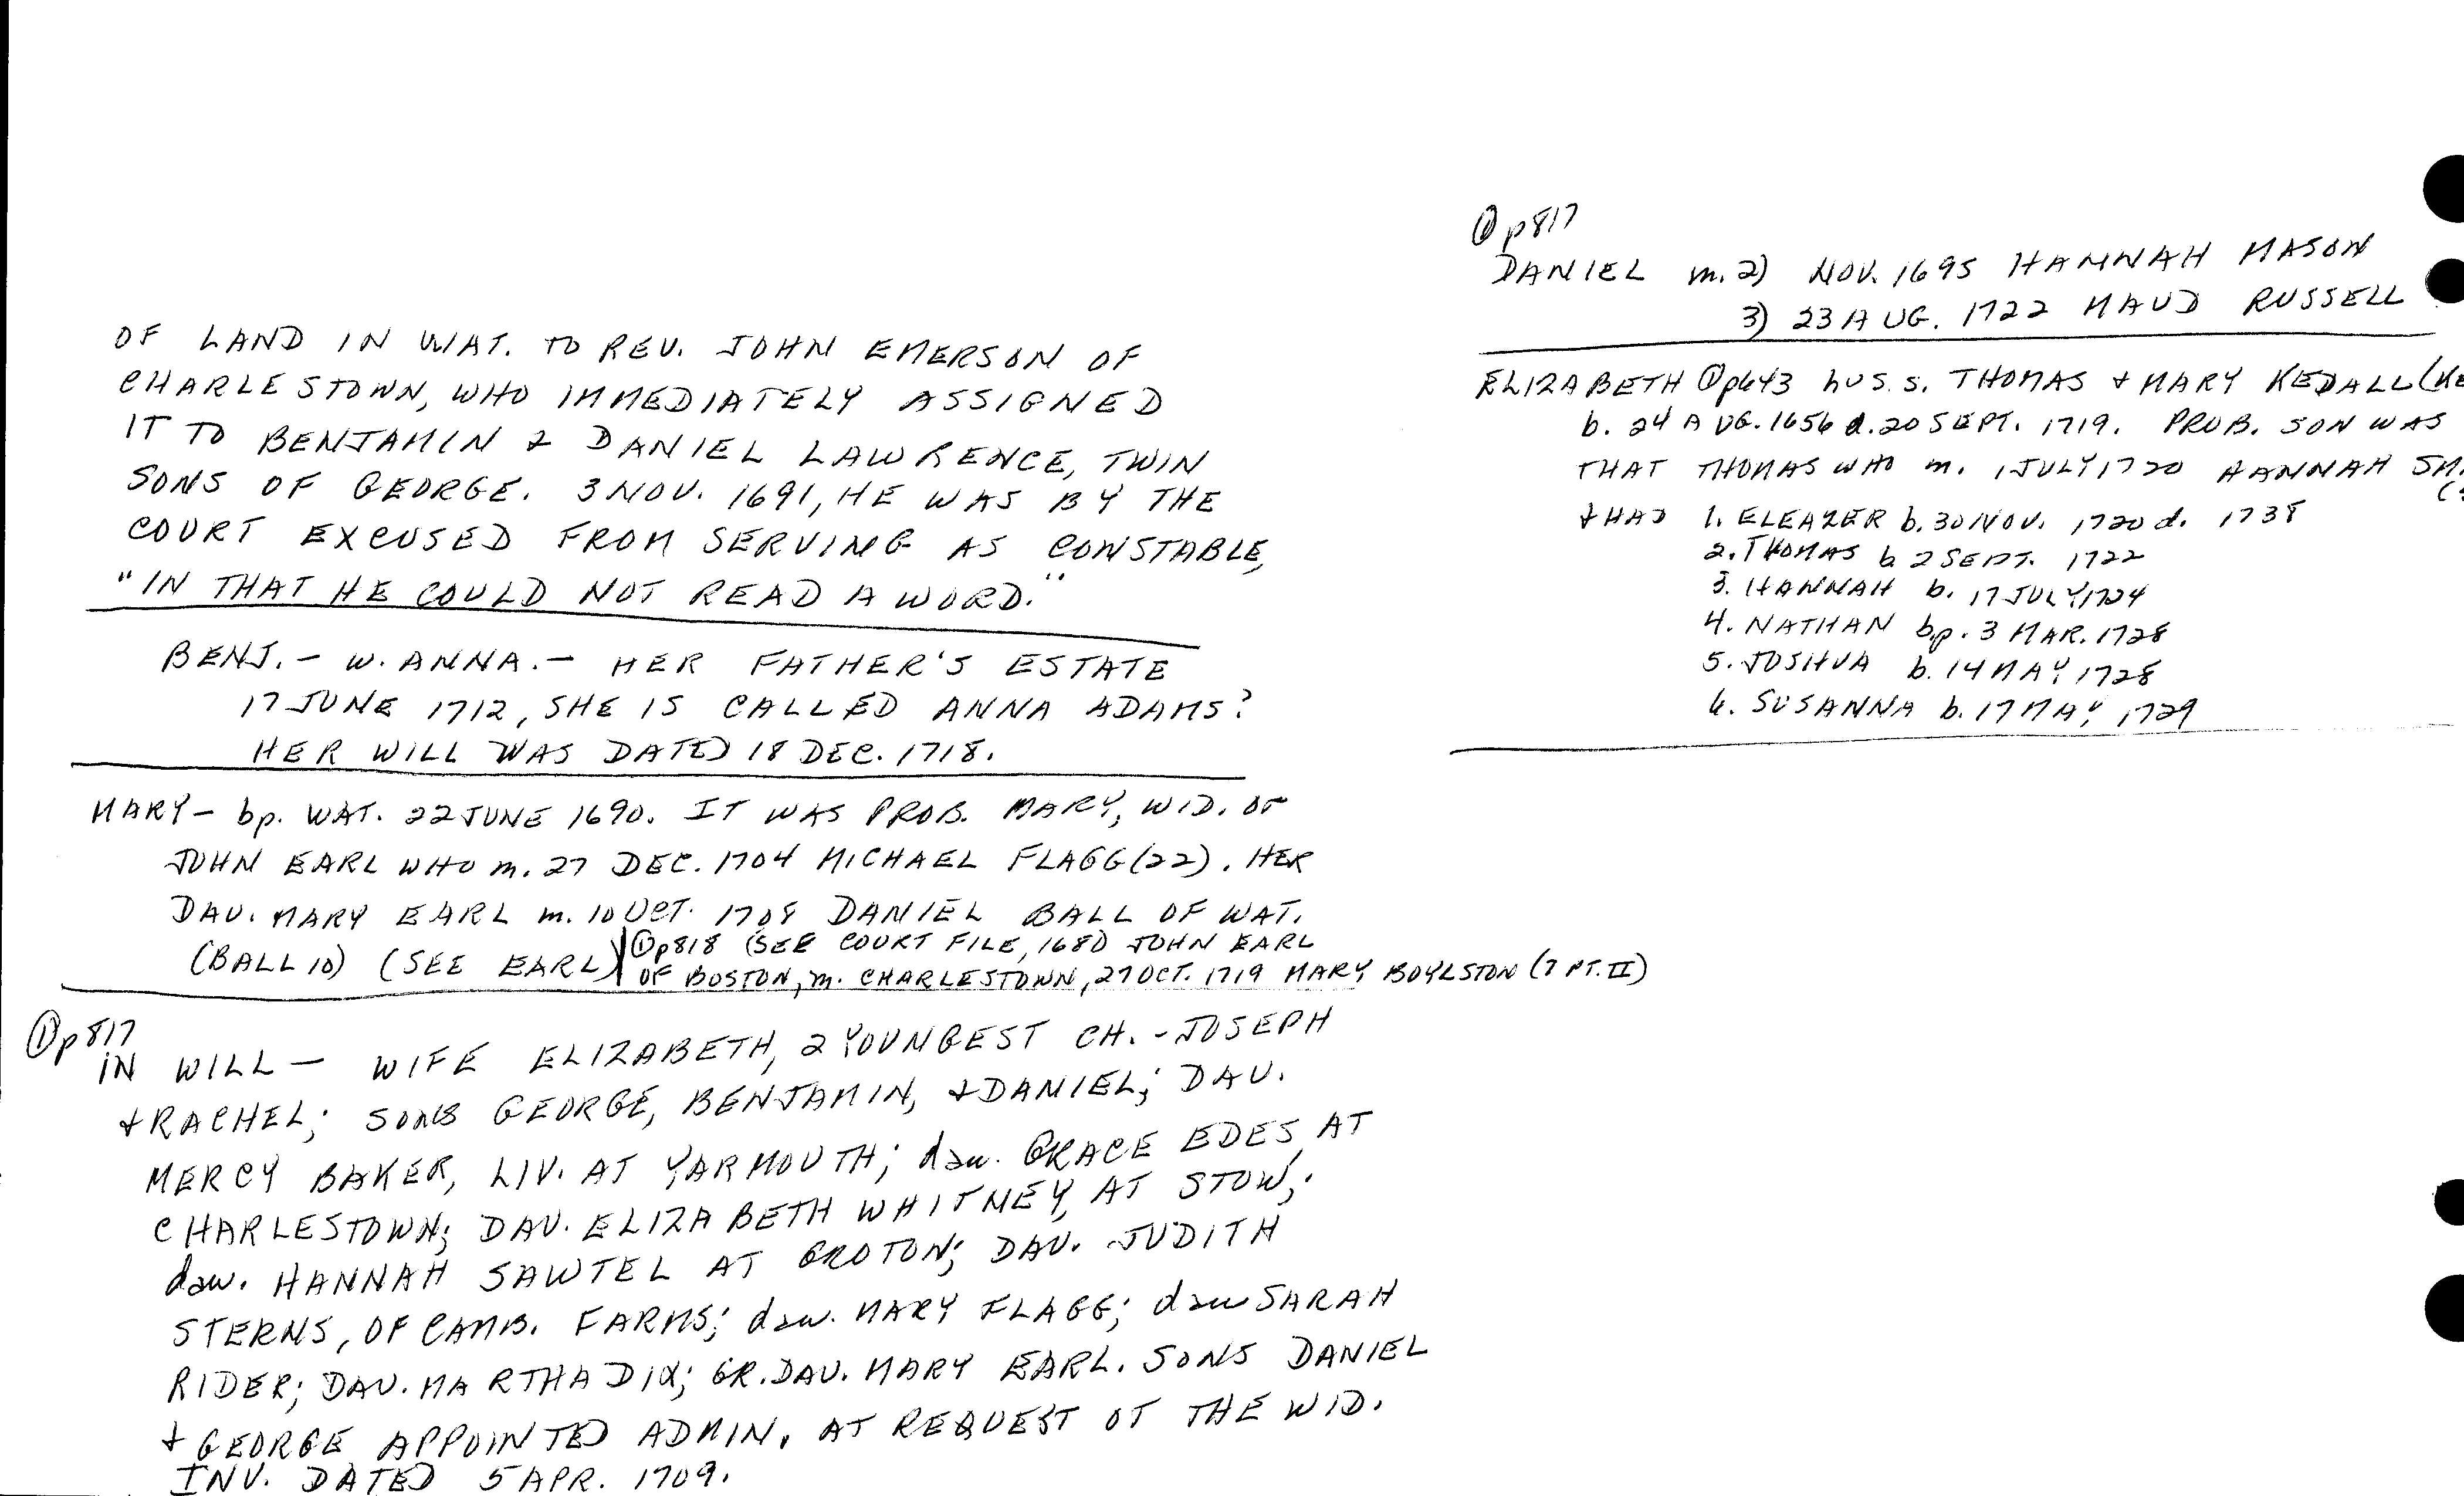 OF LAND IN WAT. TO REV. JOHN EMERSON OF
CHARLESTOWN, WHO IMMEDIATELY ASSIGNED
IT TO BENJAMIN & DANIEL LAWRENCE, TWIN
SONS OF GEORGE. 3 NOV. 1691, HE WAS BY THE
COURT EXCUSED FROM SERVING AS CONSTABLE,
"IN THAT HE COULD NOT READ A WORD."
BENJ. - W. ANNA. - HER FATHER'S ESTATE
17 JUNE 1712, SHE IS CALLED ANNA ADAMS?
HER WILL WAS DATED 18 DEC. 1718.
MARY - bp. WAT. 22 JUNE 1690. IT WAS PROB. MARY, WID. OF
JOHN EARL WHO m. 27 DEC. 1704 MICHAEL FLAGG (22). HER
DAU. MARY EARL m. 10 OCT. 1708 DANIEL BALL OF WAT.
(BALL 10) (SEE EARL) ① p818 (SEE COURT FILE, 1680) JOHN EARL
OF BOSTON, m. CHARLESTOWN, 27 OCT. 1719 MARY BOYLSTON (7 PT. II)
① p817
IN WILL - WIFE ELIZABETH, 2 YOUNGEST CH. - JOSEPH
& RACHEL; SONS GEORGE, BENJAMIN, & DANIEL; DAU.
MERCY BAKER, LIV. AT YARMOUTH; dau. GRACE EDES, AT
CHARLESTOWN; DAU. ELIZABETH WHITNEY, AT STOW;
dau. HANNAH SAWTEL AT GROTON; DAU. JUDITH
STERNS, OF CAMB. FARMS; dau. MARY FLAGG; dau SARAH
RIDER; DAU. MARTHA DIX; GR. DAU. MARY EARL. SONS DANIEL
& GEORGE APPOINTED ADMIN. AT REQUEST OT THE WID.
INV. DATED 5 APR. 1709.
① p817
DANIEL m. 2) NOV. 1695 HANNAH MASON
3) 23 AUG. 1722 MAUD RUSSELL
ELIZABETH ① p643 hus. s. THOMAS & MARY KEDALL (KE
b. 24 AUG. 1656 d. 20 SEPT. 1719. PROB. SON WAS
THAT THOMAS WHO m. 1 JULY 1720 HANNAH SM
& HAD 1. ELEAZER b. 30 NOV. 1720 d. 1738
2. THOMAS b 2 SEPT. 1722
3. HANNAH b. 17 JULY 1724
4. NATHAN bp. 3 MAR. 1728
5. JOSHUA b. 14 MAY 1728
6. SUSANNA b. 17 MAY 1729